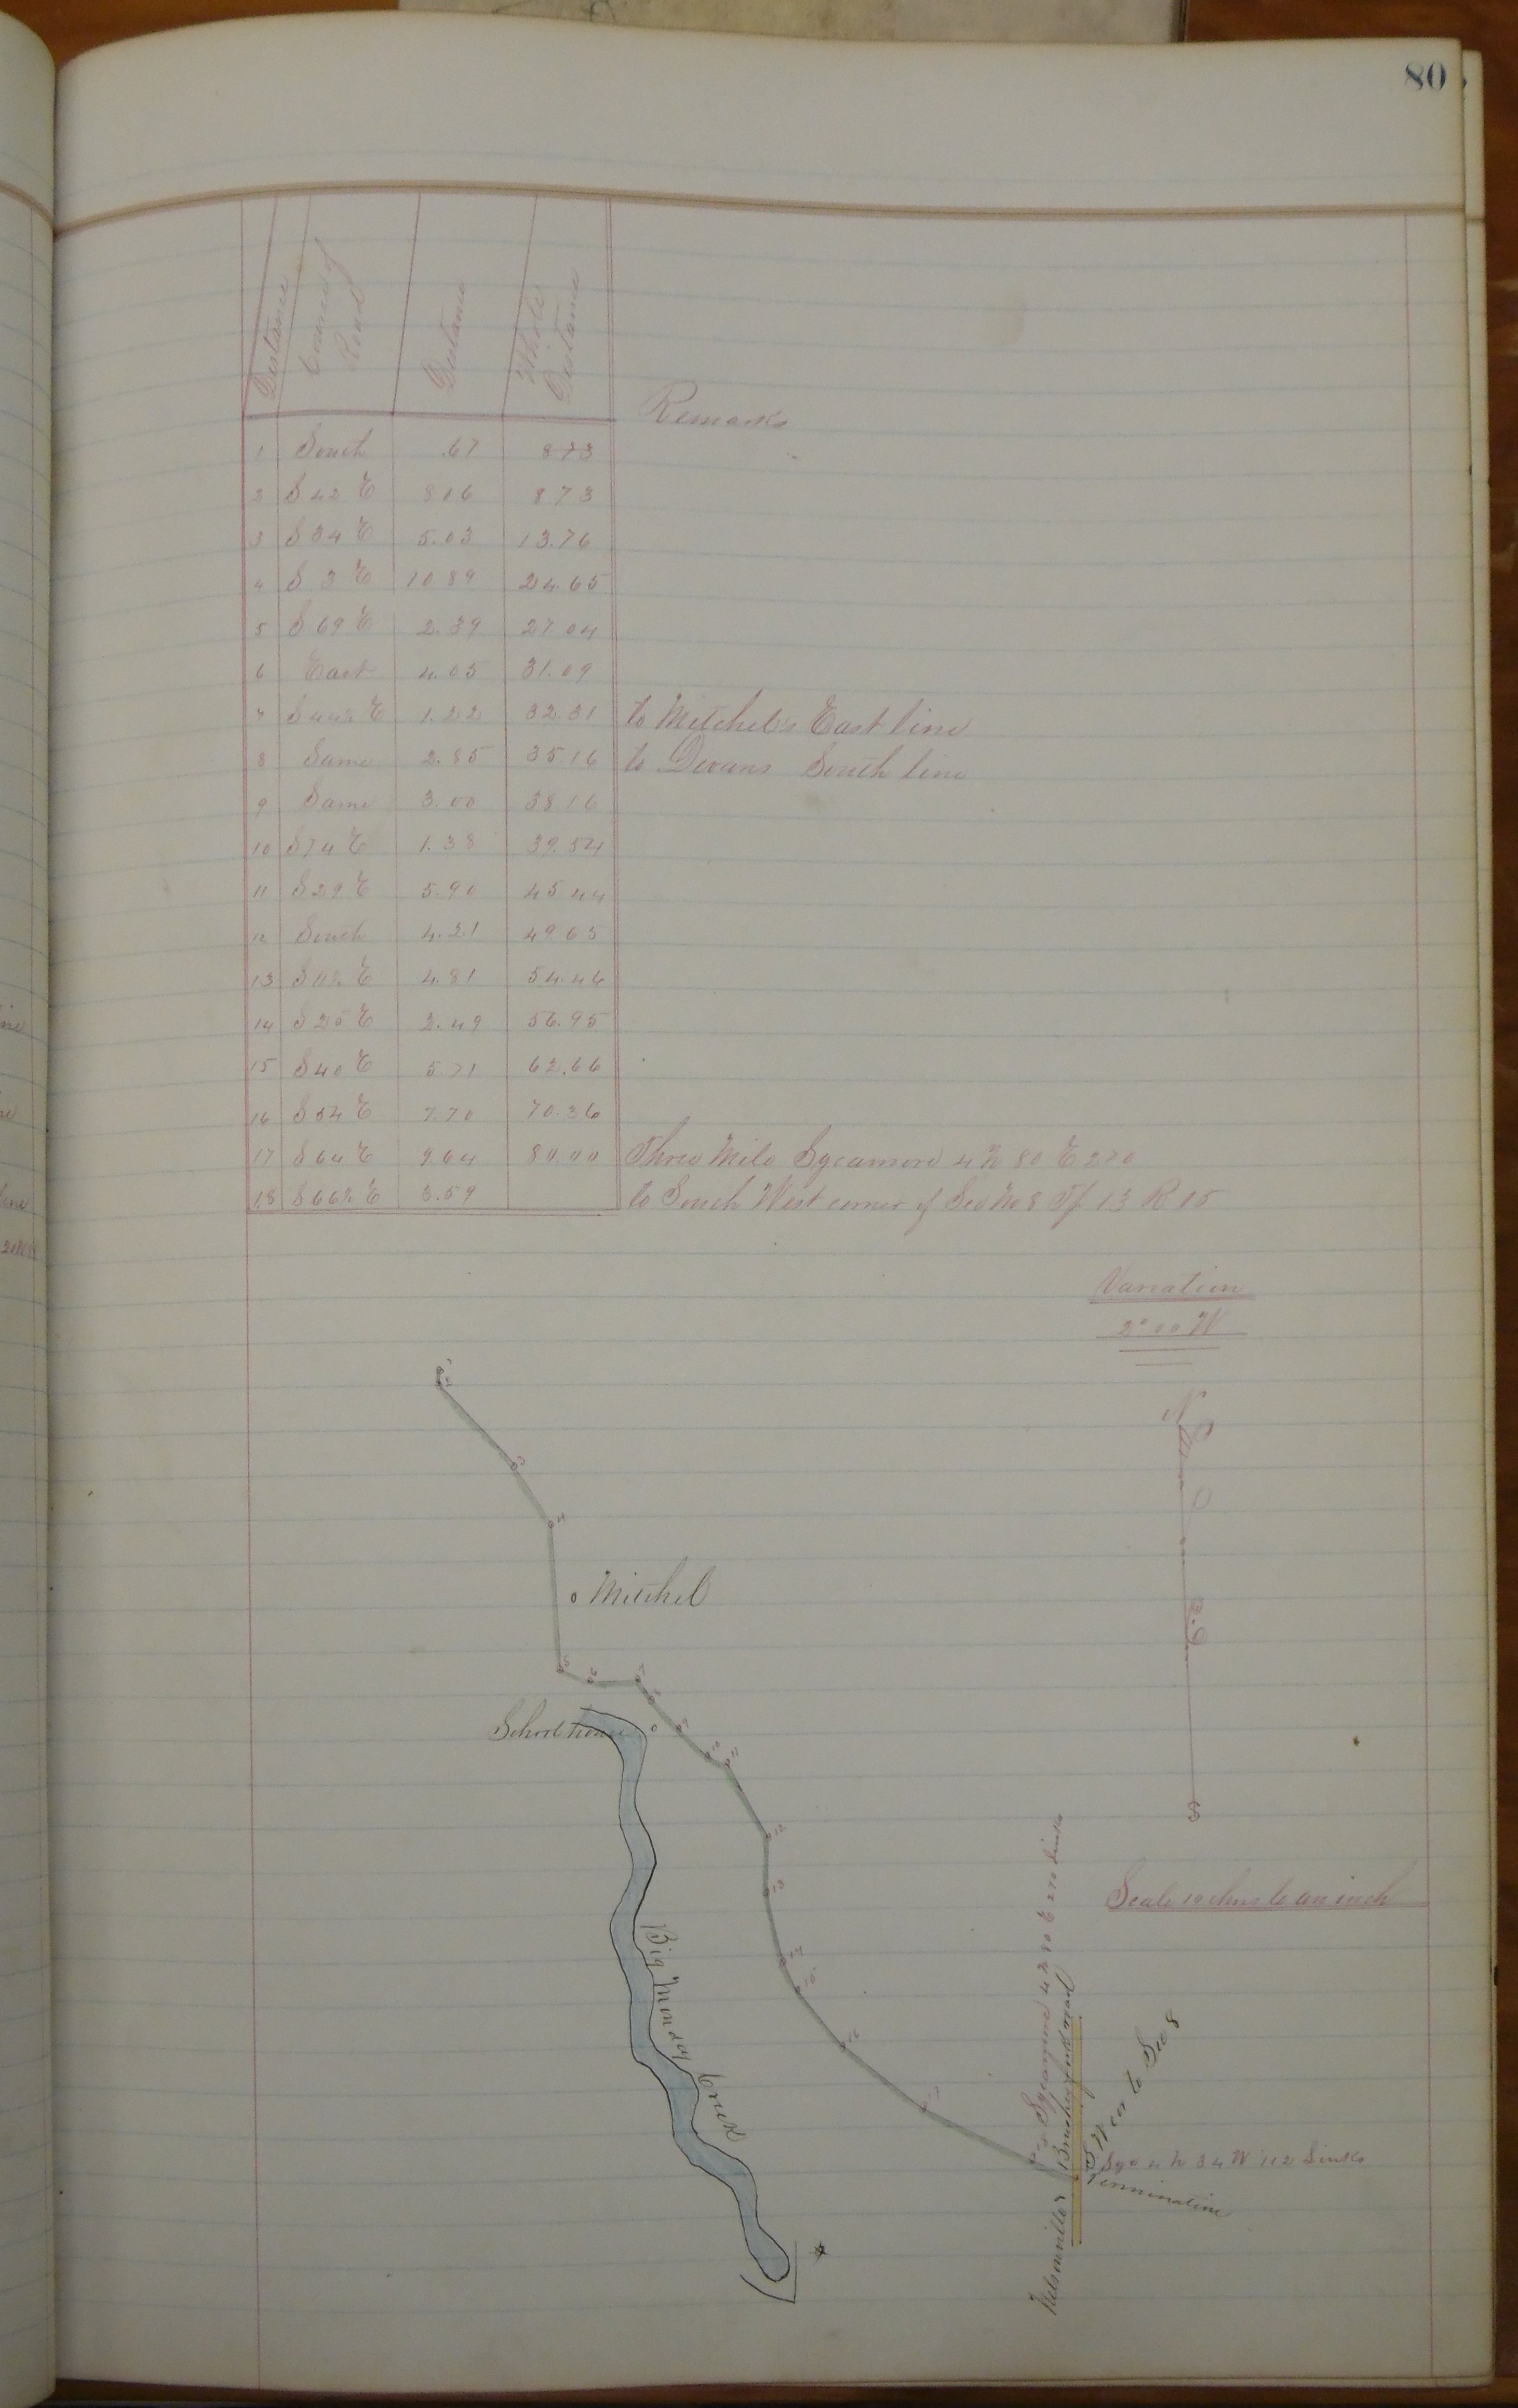 80
Distance
Course of Road
Distance
Whole Distance
Remarks
1 South .67 873
2 S 42 E 806 873
3 S 34 E 5.03 13.76
4 S 3 E 10 89 24.65
5 S 69 E 2.39 27 04
6 East 4.05 31.09
7 S 44½ E 1.22 32.31 to Mitchel's East line
8 Same 2.85 35 16 to Devans South line
9 Same 3.00 38 16
10 S 74 E 1.38 39.54
11 S 29 E 5.90 45 44
12 South 4.21 49 65
13 S 11½ E 4.81 54.46
14 S 25 E 2.49 56.95
15 S 40 E 5 71 62.66
16 S 54 E 7.70 70.36
17 S 64 E 9.64 80.00 Three Mile Sycamore 4 N 80 E 270
18 S 66½ E 3.59 to South West corner of Sec No 8 Tp 13 R 15
Variation
2° 00 W
N
Mitchel
School house
S
Scale 10 chns to an inch
Big Monday Creek
Sycamore 4 N 80 E 270 Links
Nelsonville & Brushy fork road
S W cor to Sec 8
Syc 4 N 34 W 112 Links
Termination